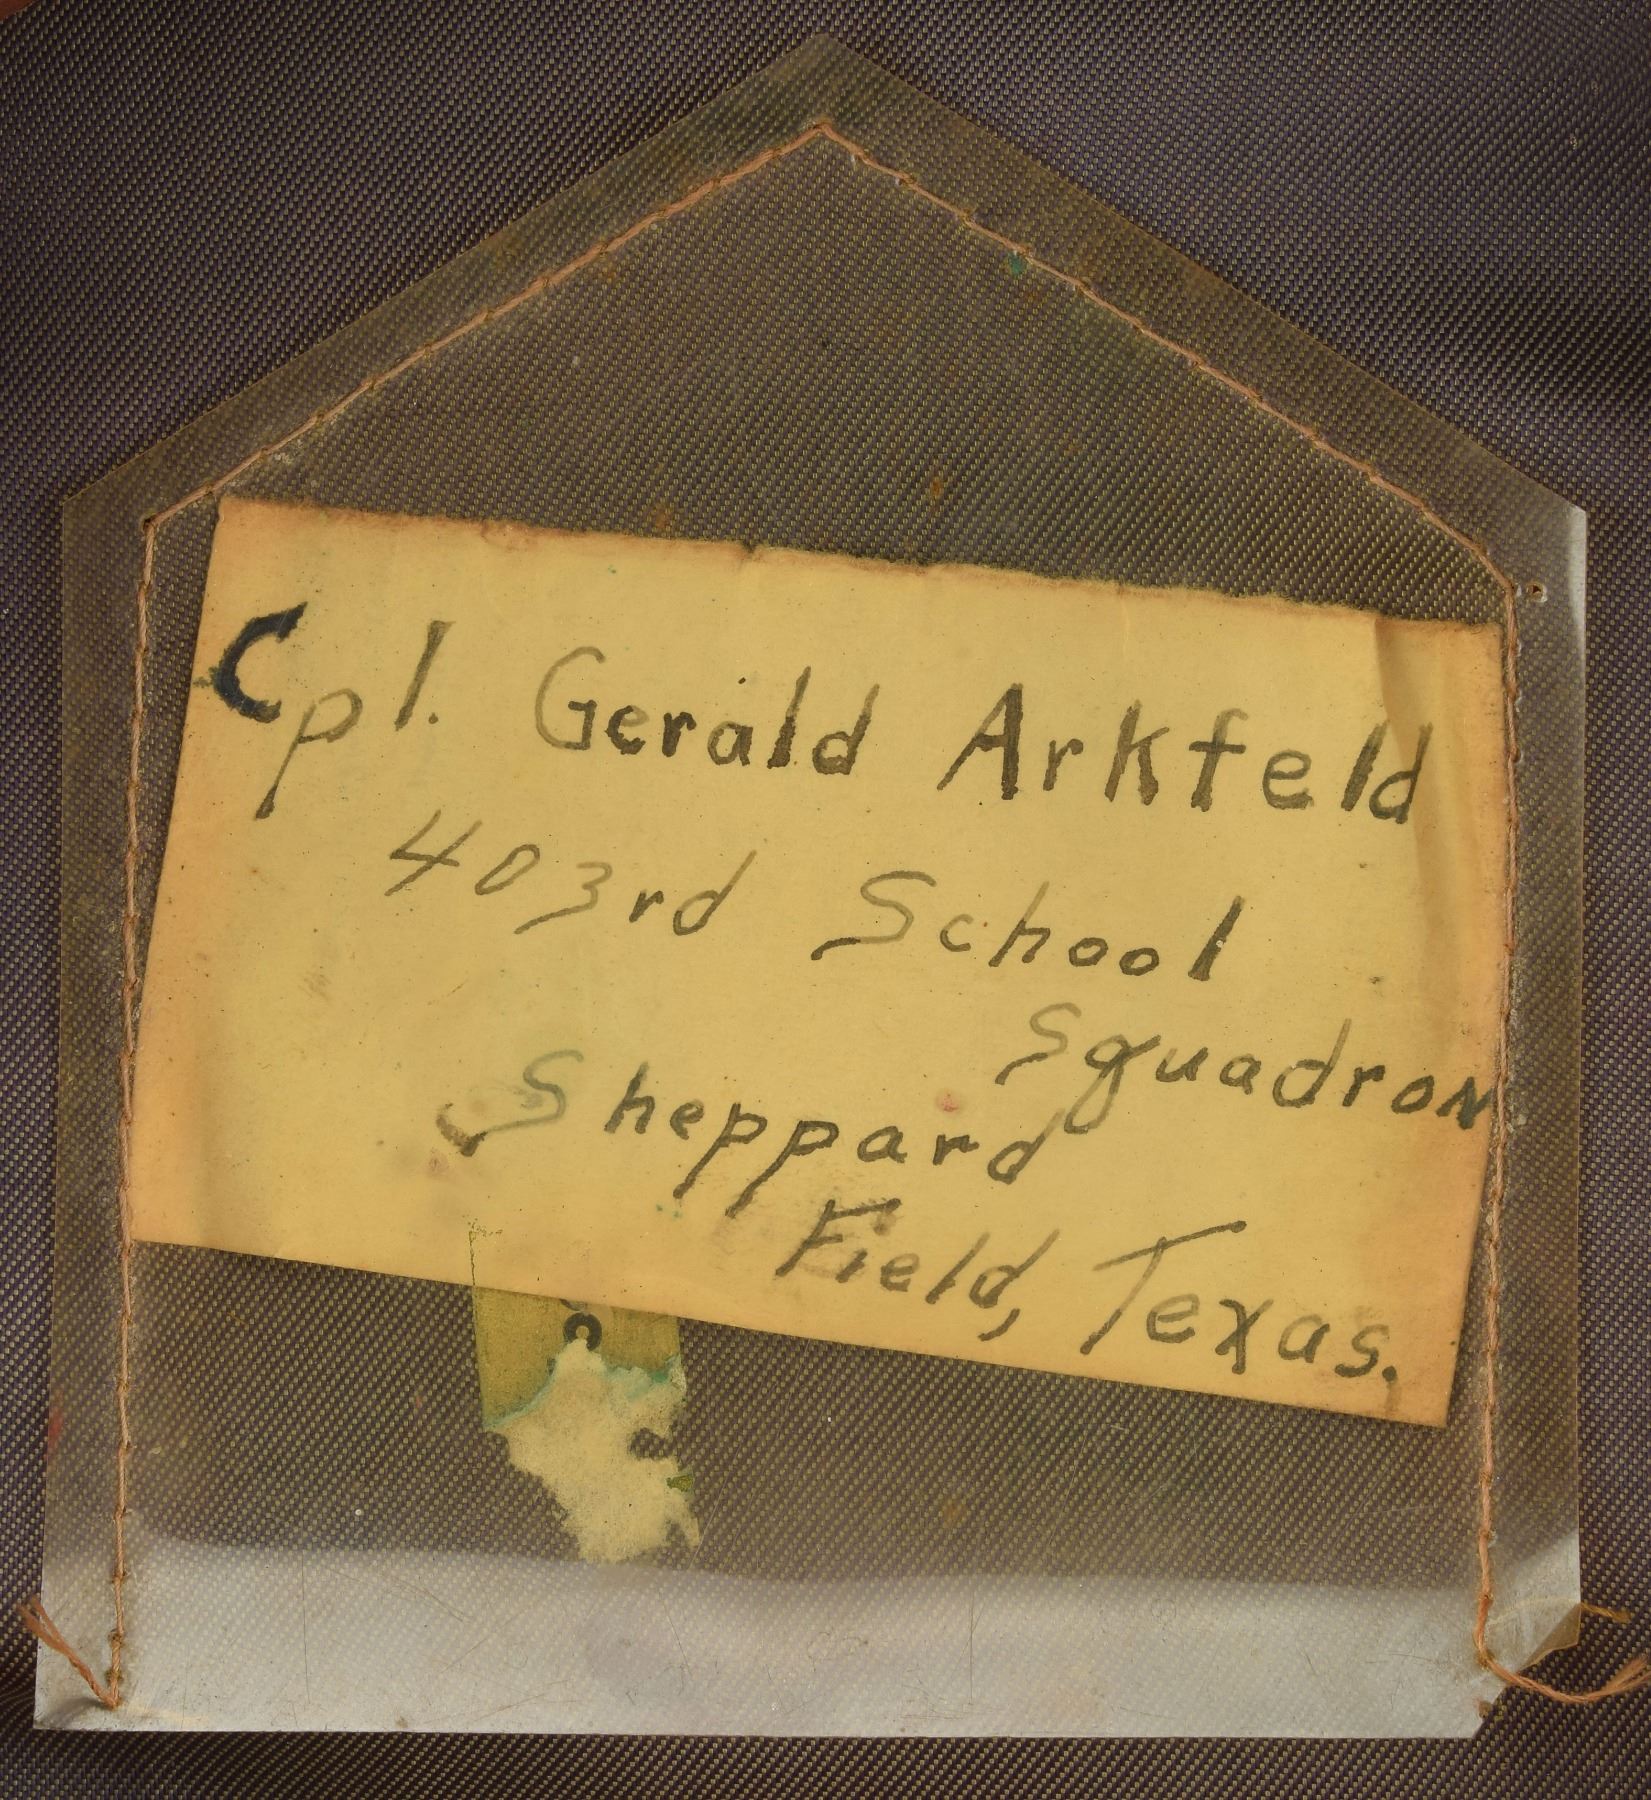 Cpl. Gerald Arkfeld
403rd School
Squadron
Sheppard
Field, Texas.